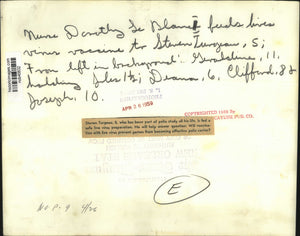 Nurse Dorothy Le Blanc feeds live
virus vaccine to Steven Turgeon, 5;
From left in background: Geraldine, 11,
holding Jules 1½; Deanna, 6, Clifford, 8 &
Joseph, 10.
APR 26 1959
COPYRIGHTED 1959 by
PUB. CO.
Steven Turgeon, 5, who has been part of polio study all his life, is fed a
safe live virus preparation. He will help answer question: Will vaccina-
tion with live virus prevent germs from becoming effective polio carrier?
E
4/26